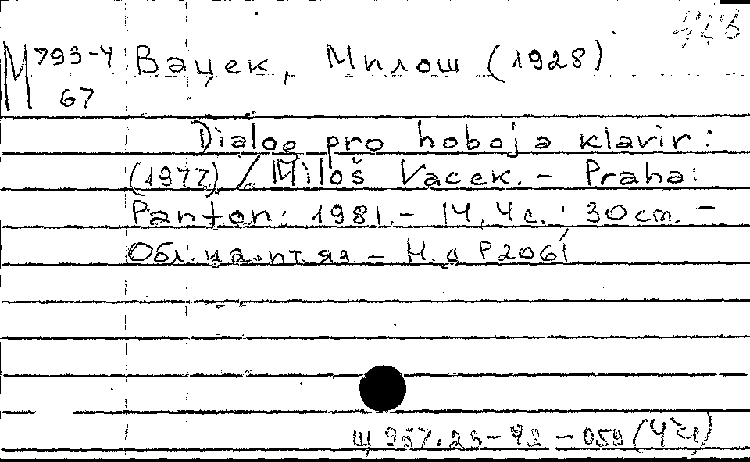 М 793-4 Вацек, Милош (1928)
67
Dialog pro hoboj a klavir:
(1977) / Miloš Vacek. - Praha:
Panton: 1981. - 14, 4 с.; 30 cm. -
Обл. на ит. яз - Н.д Р2061
Щ 957.23-92-059 (Чч)